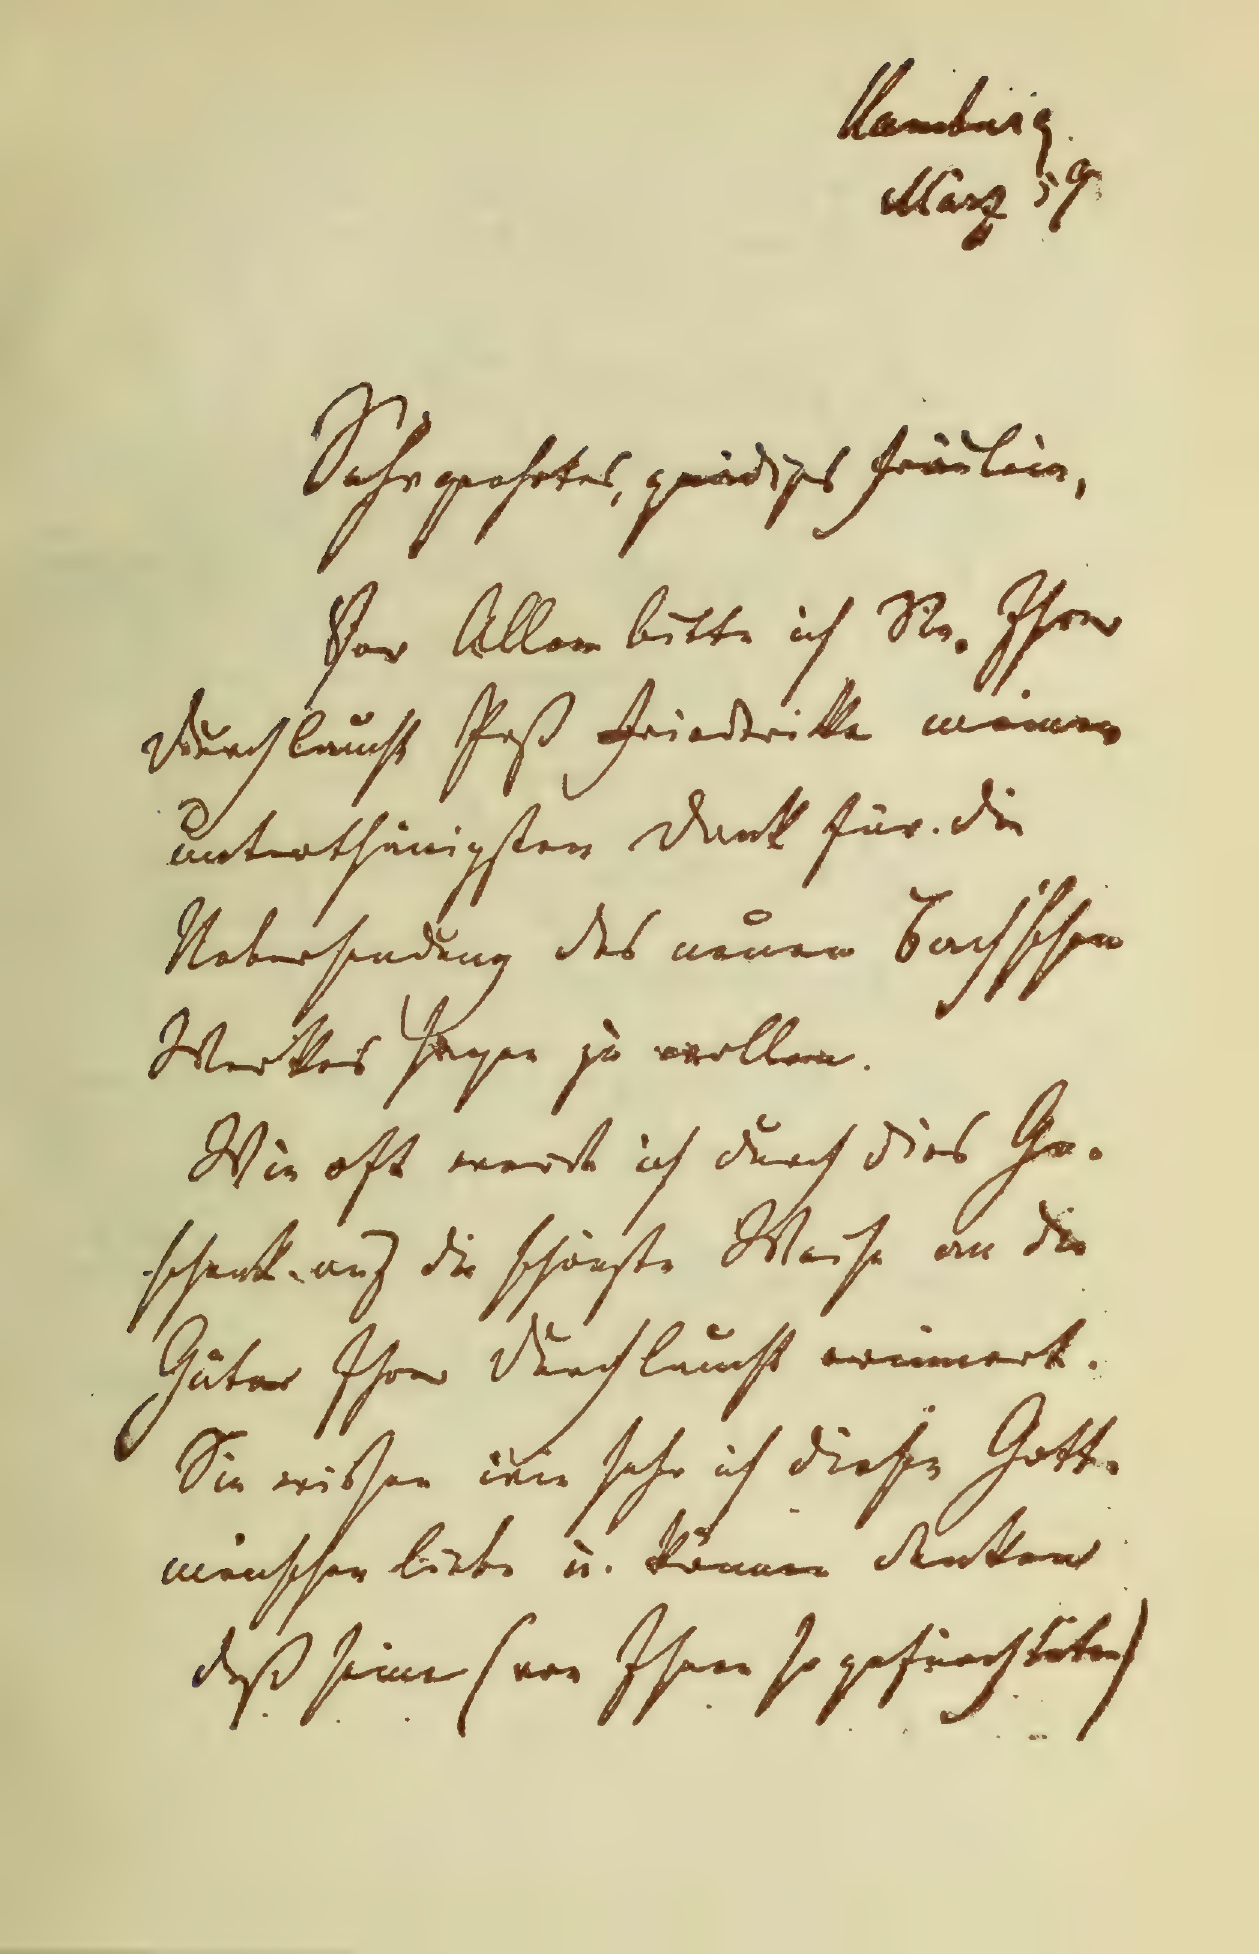 Hamburg.
März 59.
Sehr geehrtes, gnädiges Fräulein,
Vor Allem bitte ich Sie, Ihrer
Durchlaucht Prß Friederike meinen
unterthänigsten Dank für die
Uebersendung des neuen Bach'schen
Werkes sagen zu wollen.
Wie oft werde ich durch dies Ge-
schenk auf die schönste Weise an die
Güte Ihrer Durchlaucht erinnert.
Sie wissen wie sehr ich diesen Gott-
menschen liebe u. können denken
daß seine (von Ihnen so gefürchteten)